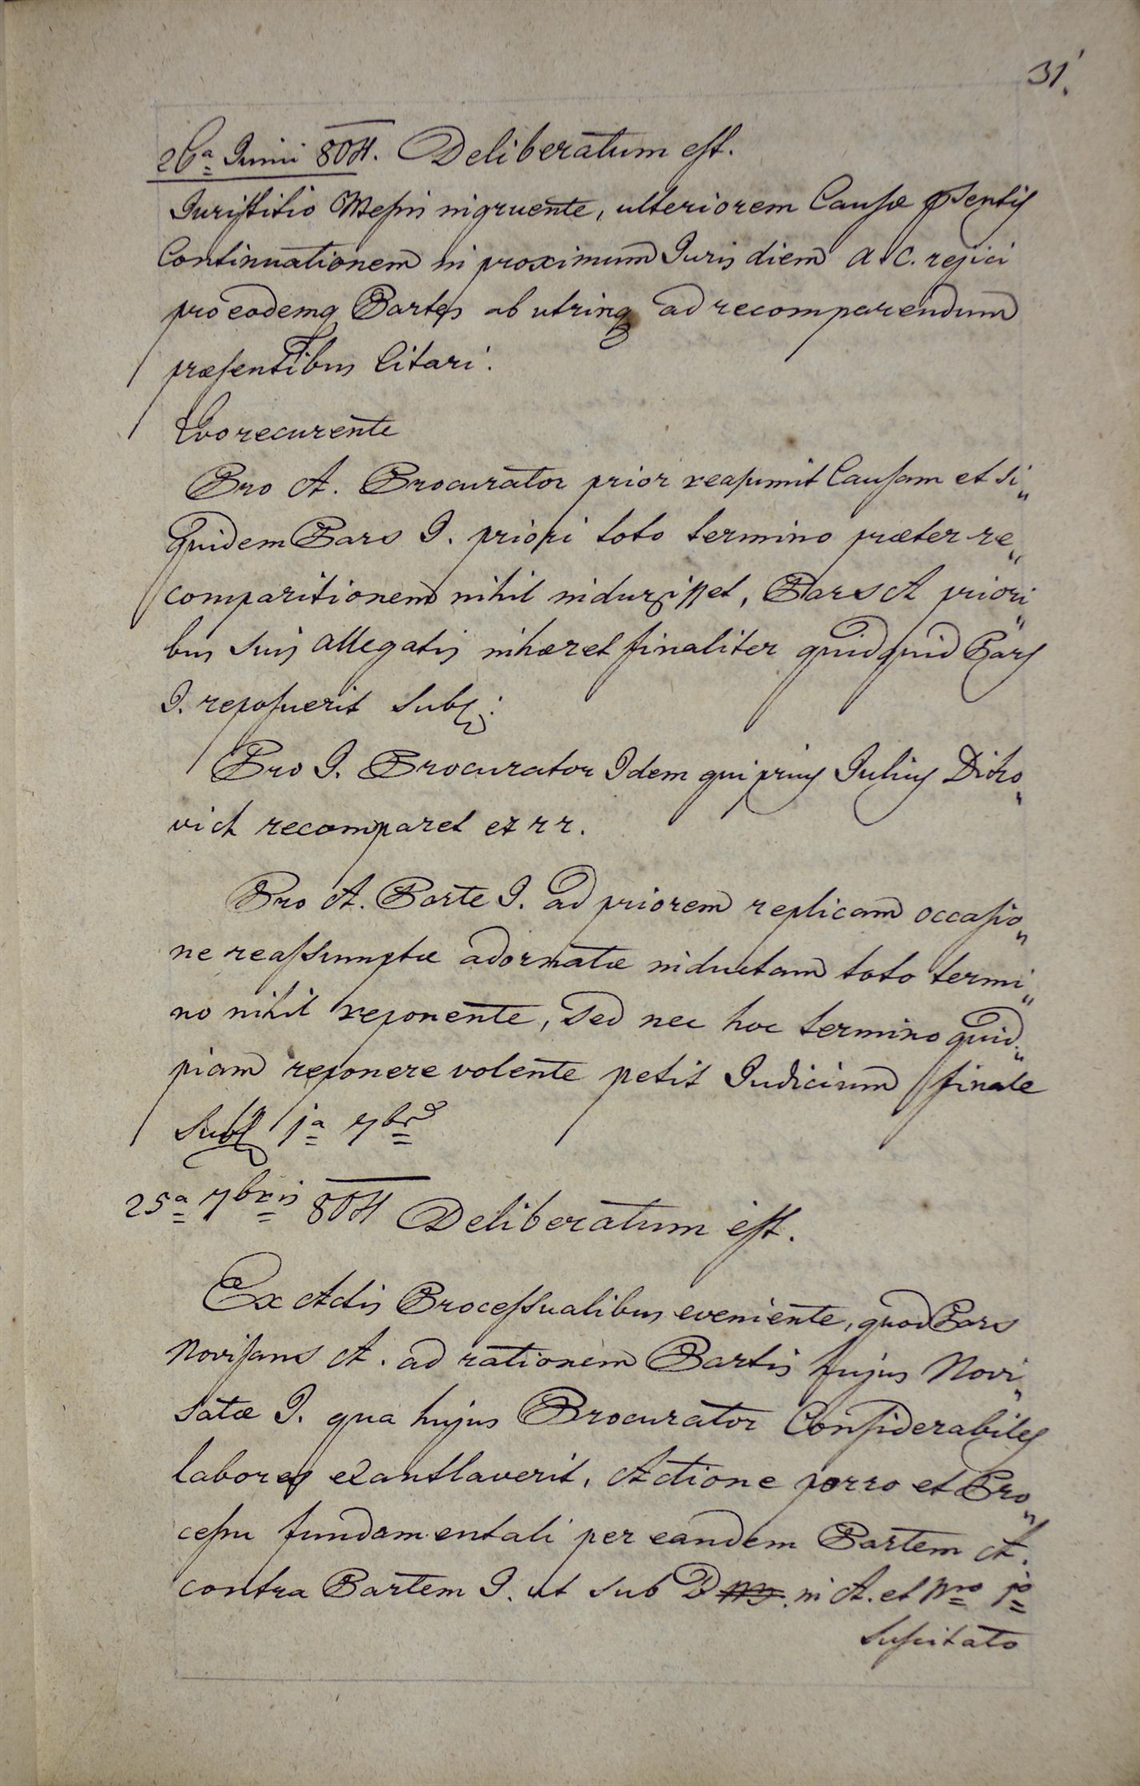 31.
26a Junii 804. Deliberatum est.
Juristitio Messis ingruente, ulteriorem Causae psentis
Continuationem in proximum Juris diem a c. rejici
pro eodemq Partes ab utrinq ad recomparendum
praesentibus Citari.
Quo recurente
Pro A. Procurator prior reasumit Causam et si„
quidem Pars I. priori toto termino praeter re„
comparitionem nihil induxisset, Pars A priori„
bus suis allegatis inhaeret finaliter quidquid Pars
I. reposuerit Subs:
Pro I. Procurator Idem qui prius Julius Ditro„
vich recomparet et rr.
Pro A. Parte I. ad priorem replicam occasio„
ne reassumptae adornatae inductam toto termi„
no nihil reponente, sed nec hoc termino quid„
piam reponere volente petit Judicium finale
Subs 1a 7br
25a 7bris 804 Deliberatum est.
Ex Actis Processualibus eveniente, quod Pars
Novisans A. ad rationem Partis hujus Novi„
satae I. qua hujus Procurator Considerabiles
labores exantlaverit, Actione porro et Pro„
cessu fundamentali per eandem Partem A.
contra Partem I. ut sub D in A. et Nro 1o
Suscitato